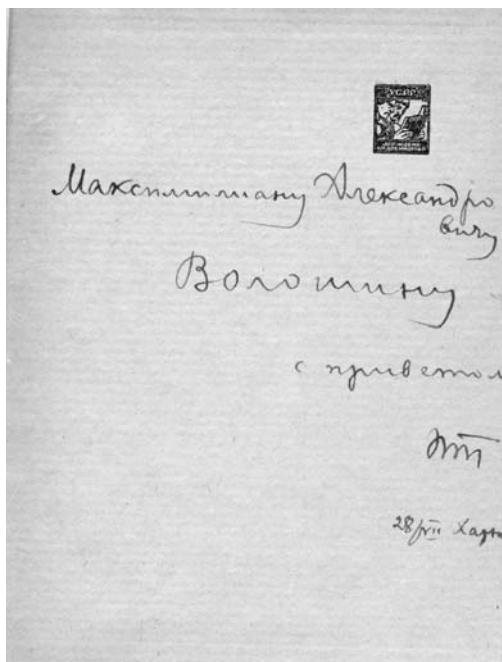 УСРР
Максимилиану Александро
вичу
Волошину
с привето
28/VII Харь